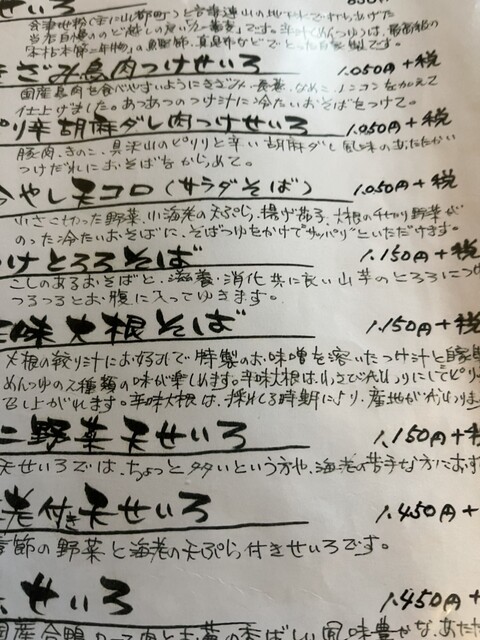 せいろ
会津地粉(主に山都町)と言
当店自慢ののど越しの良い
本枯本節二年物
きざみ鳥肉つけせいろ 1,050円+税
国産鳥肉を食べやすいようにきざみ
仕上げました。あつあつのつけ汁に冷たいおそばをつけて。
ピリ辛胡麻ダレ肉つけせいろ 1,050円+税
豚肉、きのこ、具沢山のピリリと辛い胡麻ダレ風味のあたたかい
つけだれにおそばをからめて。
やし天コロ(サラダそば) 1,050円+税
小さく切った野菜、小海老の天ぷら、揚げ茄子、大根の千切り野菜が
のった冷たいおそばに、そばつゆをかけてサッパリといただけます。
つけとろろそば 1,150円+税
こしのあるおそばと、滋養、消化共に良い山芋のとろろにつけ
つるつるとお腹に入ってゆきます。
味大根そば 1,150円+税
大根の絞り汁にお好みで特製のお味噌を溶いたつけ汁と
めんつゆの2種類の味が楽しめます。辛味大根はわさび代わりにしてピリ
召し上がれます。辛味大根は、採れる時期により、産地が代わりま
野菜天せいろ 1,150円+
天せいろでは、ちょっと多いという方や、海老の苦手な方におす
老付き天せいろ 1,450円+
季節の野菜と海老の天ぷら付きせいろです。
せいろ 1,450円+
国産合鴨